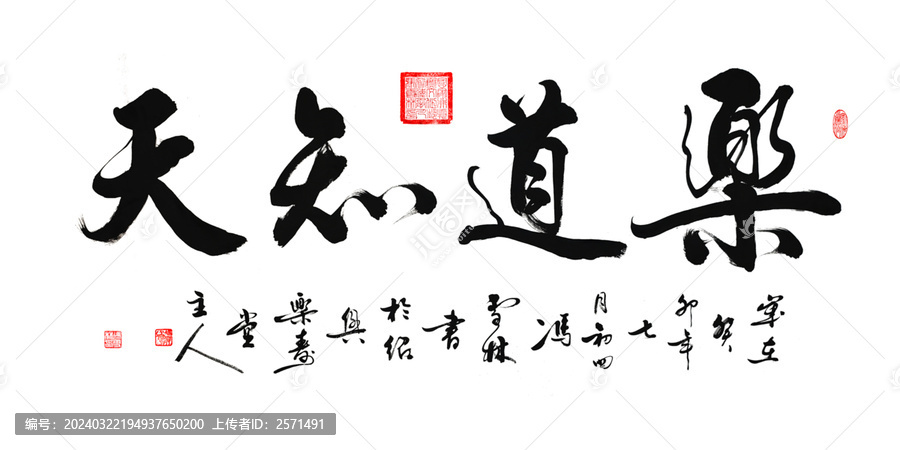 樂道知天
歲在癸卯年七月初四馮雪林書於紹興樂壽堂主人
编号：20240322194937650200 上传者ID：2571491